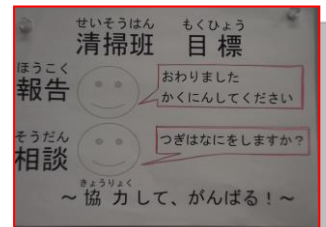 せいそうはん もくひょう
清掃班 目標
ほうこく
報告
おわりました
かくにんしてください
そうだん
相談
つぎはなにをしますか？
きょうりょく
～協力して、がんばる！～